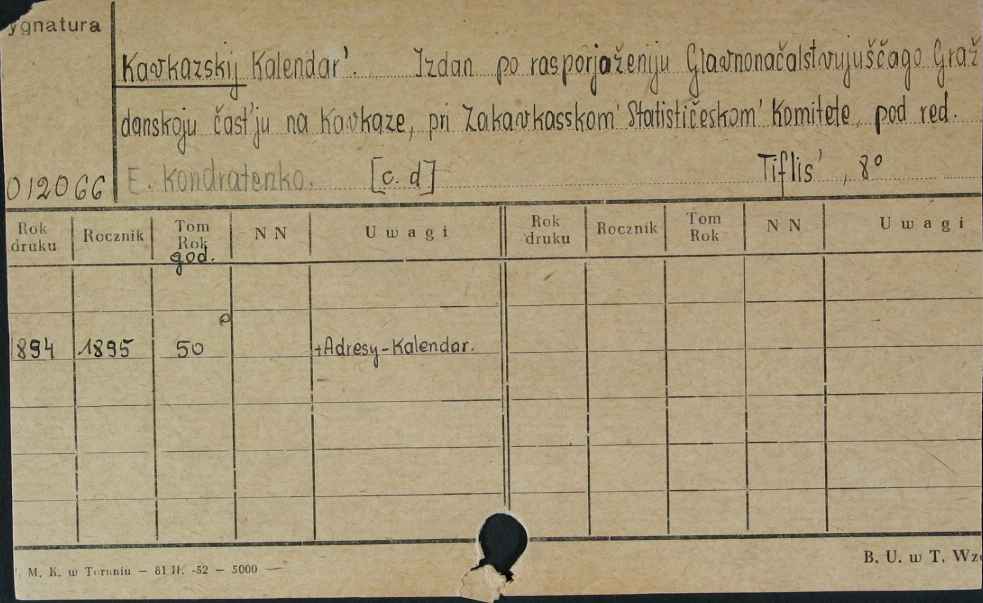 ygnatura
Kavkazskij Kalendar'. Izdan po rasporjaženiju Glavnonačalstvujuščago Graž
danskoju čast'ju na Kavkaze, pri Zakavkasskom' Statističeskom' Komitete, pod red.
E. Kondratenko. [c. d] Tiflis', 8°
012066
Rok druku Rocznik Tom Rok god. N N Uwagi Rok druku Rocznik Tom Rok N N Uwagi
894 1895 50 +Adresy-Kalendar.
M. K. w Toruniu — 81 II. -52 — 5000 —
B. U. w T. Wz